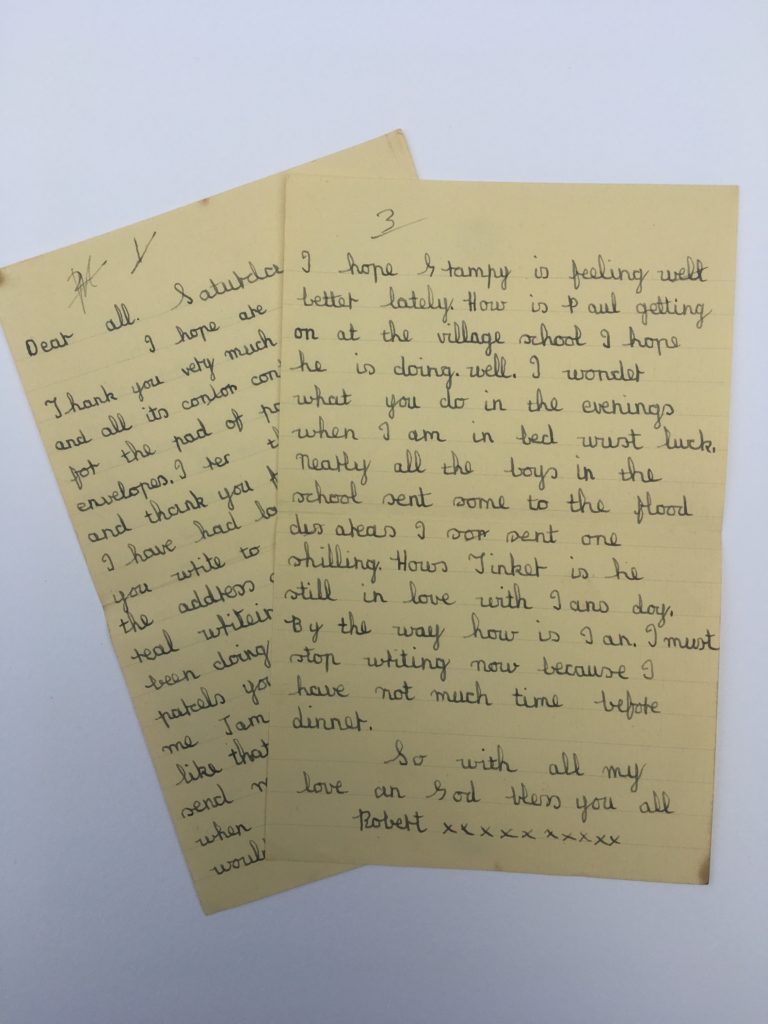 1
Dear all. Saturda
I hope are
Thank you very much
and all its conton con
for the pad of
envelopes. I ter
and thank you
I have had
you write to
the address
real writein
been doing
parcels yo
me I am
like that
send
when
woul
3
I hope Stampy is feeling welt
better lately. How is Paul getting
on at the village school I hope
he is doing. well. I wonder
what you do in the evenings
when I am in bed wrust luck.
Nearly all the boys in the
school sent some to the flood
dis areas I son sent one
shilling. Hows Tinker is he
still in love with Ians dog.
By the way how is Ian. I must
stop writing now because I
have not much time before
dinner.
So with all my
love an God bless you all
Robert xxxxxxxxxx